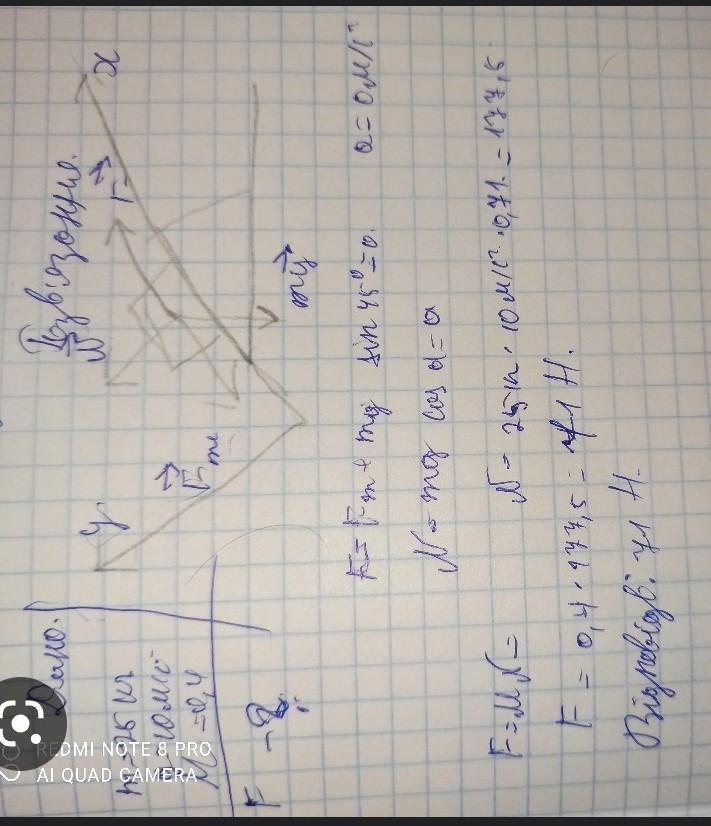 Дано:
m = 25 кг
g = 10 м/с²
μ = 0,4
F - ?
Розв'язання.
y
x
N
F
Fт
mg
F = Fт + mg sin 45° = 0. a = 0 м/с²
N - mg cos α = 0
F = μN =
N = 25 кг · 10 м/с² · 0,71 = 177,5.
F = 0,4 · 177,5 = 71 Н.
Відповідь: 71 Н.
REDMI NOTE 8 PRO
AI QUAD CAMERA